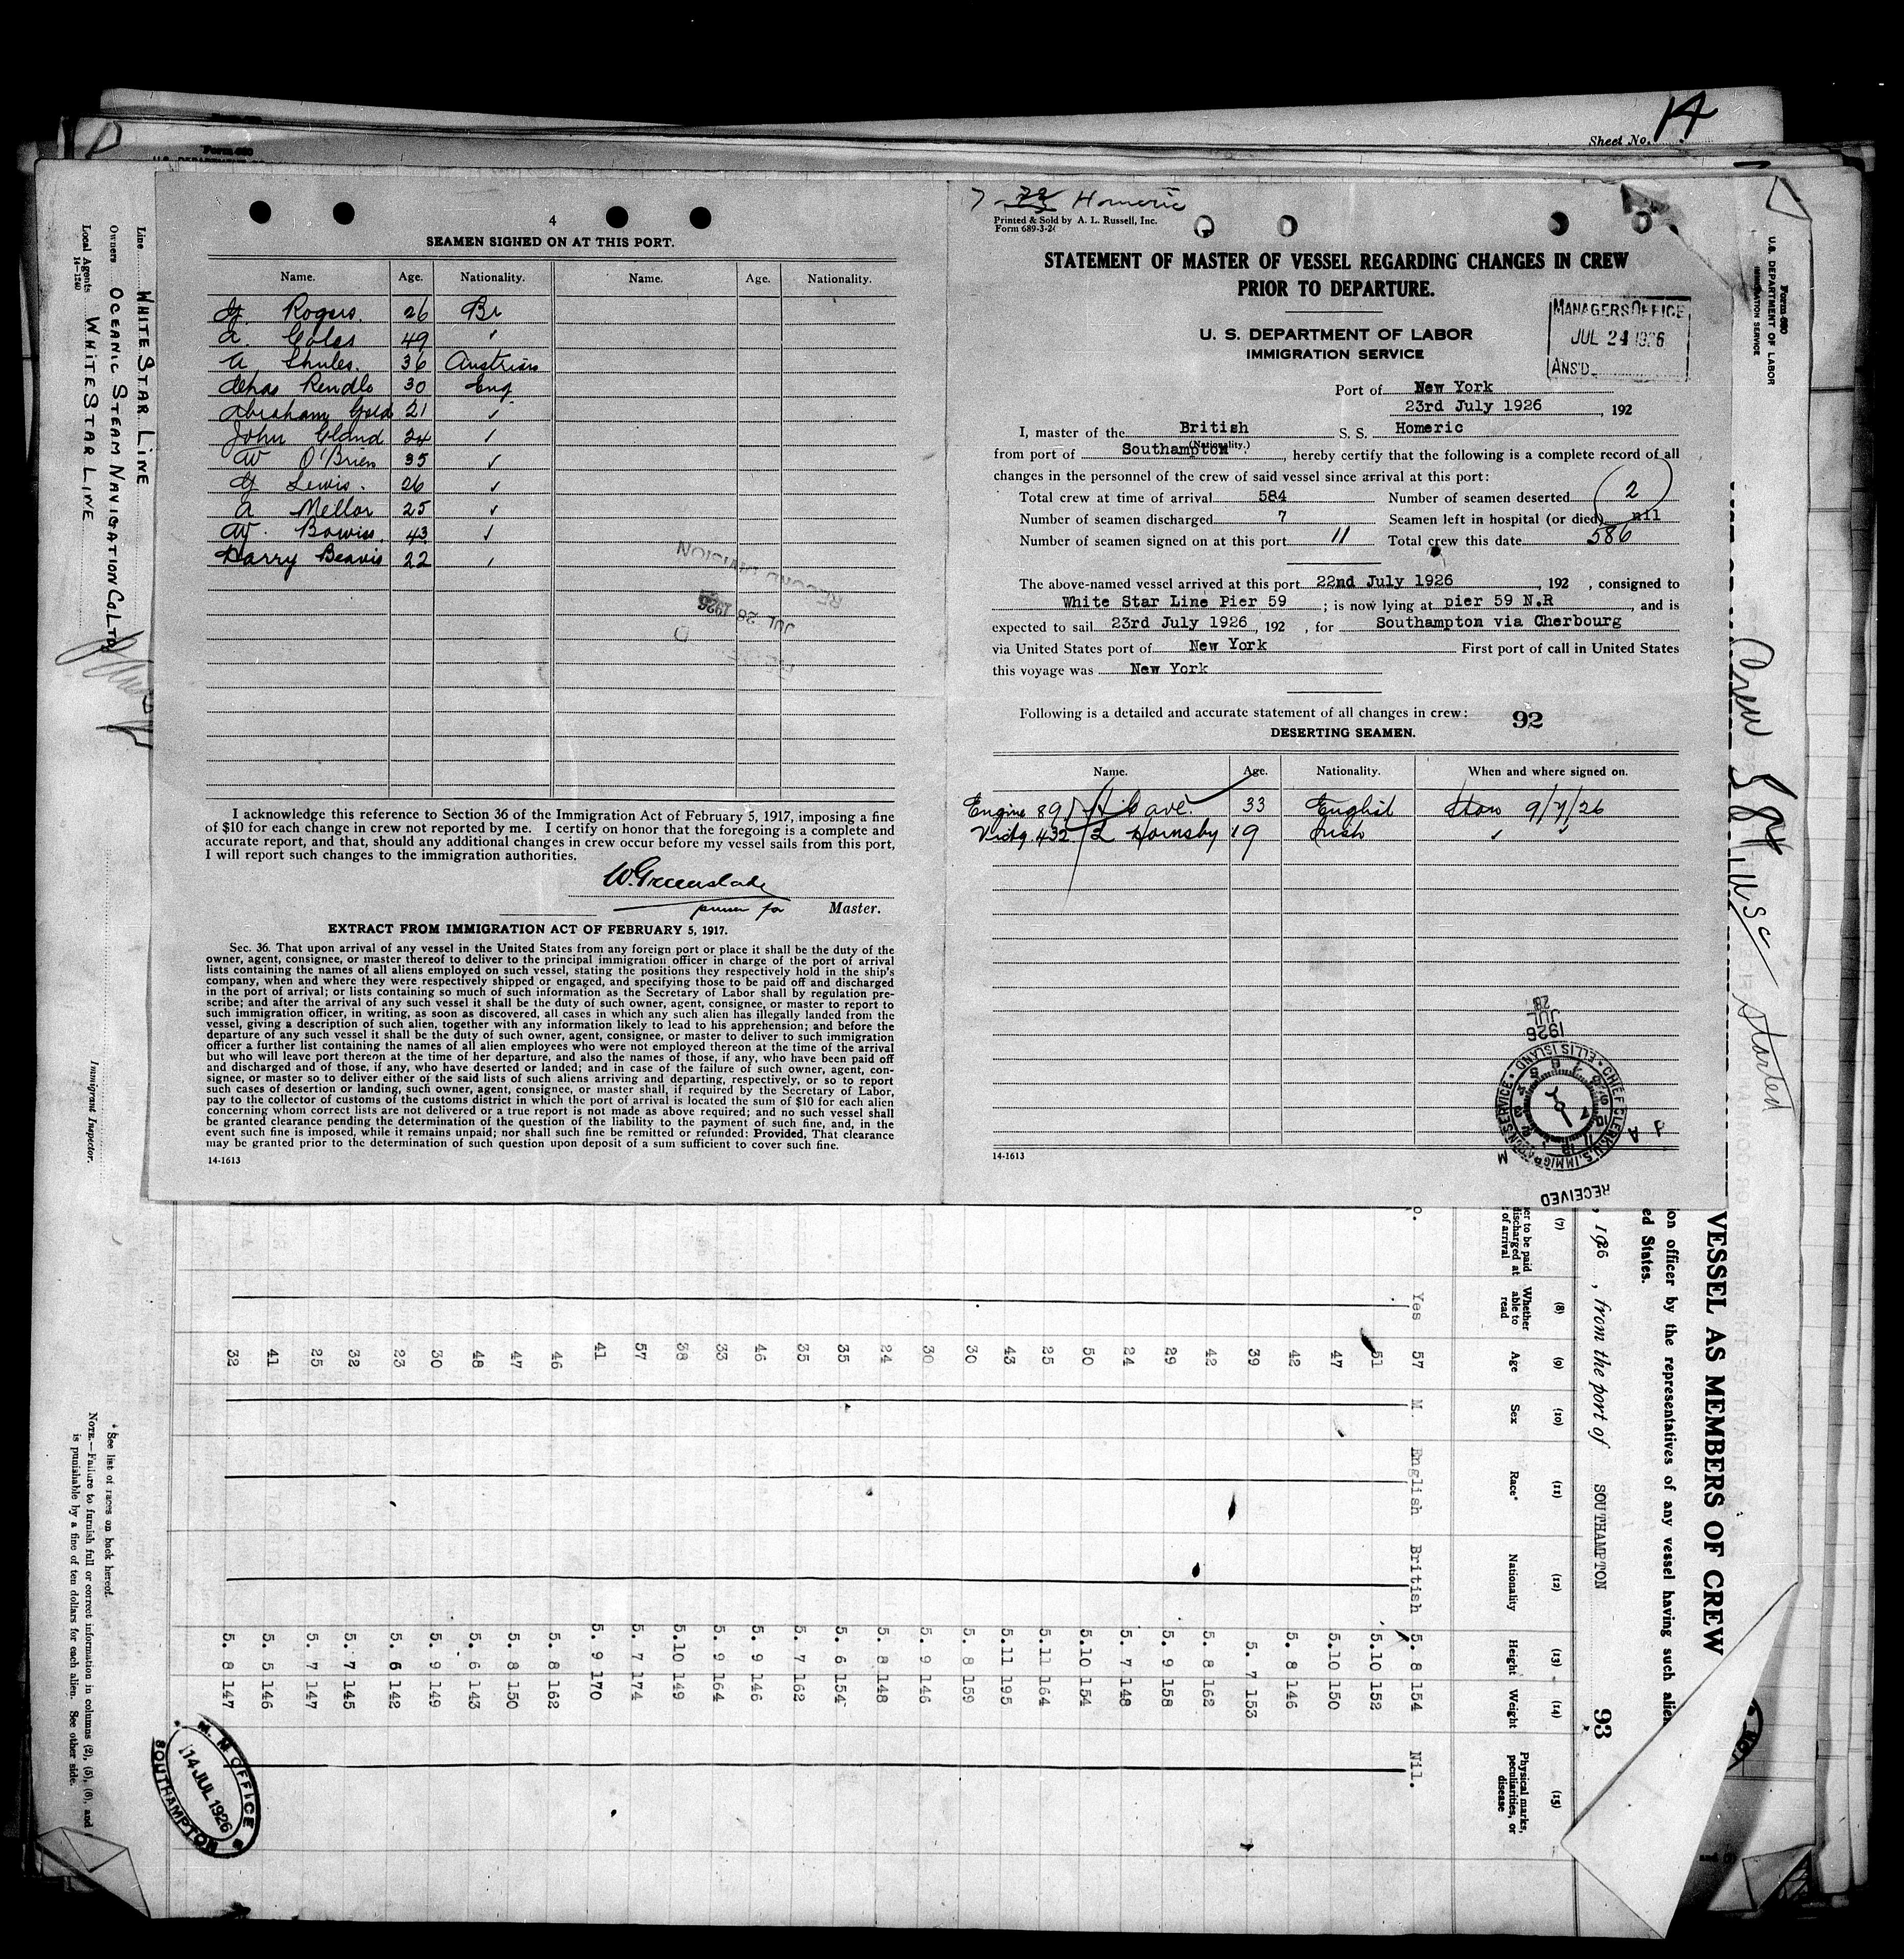 Sheet No. 14
4
SEAMEN SIGNED ON AT THIS PORT.
Name. Age. Nationality. Name. Age. Nationality.
G Rogers. 26 Br
A. Coles 49 "
A Shules. 36 Austrian
Chas Rendle 30 Eng
Abraham Gold 21 ✓
John Gland 24 ✓
W O'Brien 35 ✓
G Lewis. 26 ✓
A Mellor 25 ✓
W. Bowiss. 43 ✓
Harry Beavis 22 ✓
RECORD DIVISION
JUL 28 1926
I acknowledge this reference to Section 36 of the Immigration Act of February 5, 1917, imposing a fine
of $10 for each change in crew not reported by me. I certify on honor that the foregoing is a complete and
accurate report, and that, should any additional changes in crew occur before my vessel sails from this port,
I will report such changes to the immigration authorities.
W. Greenslade
purser for Master.
EXTRACT FROM IMMIGRATION ACT OF FEBRUARY 5, 1917.
Sec. 36. That upon arrival of any vessel in the United States from any foreign port or place it shall be the duty of the
owner, agent, consignee, or master thereof to deliver to the principal immigration officer in charge of the port of arrival
lists containing the names of all aliens employed on such vessel, stating the positions they respectively hold in the ship's
company, when and where they were respectively shipped or engaged, and specifying those to be paid off and discharged
in the port of arrival; or lists containing so much of such information as the Secretary of Labor shall by regulation pre-
scribe; and after the arrival of any such vessel it shall be the duty of such owner, agent, consignee, or master to report to
such immigration officer, in writing, as soon as discovered, all cases in which any such alien has illegally landed from the
vessel, giving a description of such alien, together with any information likely to lead to his apprehension; and before the
departure of any such vessel it shall be the duty of such owner, agent, consignee, or master to deliver to such immigration
officer a further list containing the names of all alien employees who were not employed thereon at the time of the arrival
but who will leave port thereon at the time of her departure, and also the names of those, if any, who have been paid off
and discharged and of those, if any, who have deserted or landed; and in case of the failure of such owner, agent, con-
signee, or master so to deliver either of the said lists of such aliens arriving and departing, respectively, or so to report
such cases of desertion or landing, such owner, agent, consignee, or master shall, if required by the Secretary of Labor,
pay to the collector of customs of the customs district in which the port of arrival is located the sum of $10 for each alien
concerning whom correct lists are not delivered or a true report is not made as above required; and no such vessel shall
be granted clearance pending the determination of the question of the liability to the payment of such fine, and, in the
event such fine is imposed, while it remains unpaid; nor shall such fine be remitted or refunded: Provided, That clearance
may be granted prior to the determination of such question upon deposit of a sum sufficient to cover such fine.
14-1613
Homeric
Printed & Sold by A. L. Russell, Inc.
Form 689-3-24
STATEMENT OF MASTER OF VESSEL REGARDING CHANGES IN CREW
PRIOR TO DEPARTURE.
U. S. DEPARTMENT OF LABOR
IMMIGRATION SERVICE
MANAGERS OFFICE
JUL 24 1926
ANS'D.
Port of New York
23rd July 1926, 192
I, master of the British S. S. Homeric
(Nationality.)
from port of Southampton, hereby certify that the following is a complete record of all
changes in the personnel of the crew of said vessel since arrival at this port:
Total crew at time of arrival 584 Number of seamen deserted 2
Number of seamen discharged 7 Seamen left in hospital (or died) nil
Number of seamen signed on at this port 11 Total crew this date 586
The above-named vessel arrived at this port 22nd July 1926, 192 , consigned to
White Star Line Pier 59 ; is now lying at pier 59 N.R , and is
expected to sail 23rd July 1926, 192 , for Southampton via Cherbourg
via United States port of New York First port of call in United States
this voyage was New York
Following is a detailed and accurate statement of all changes in crew: 92
DESERTING SEAMEN.
Name. Age. Nationality. When and where signed on.
Engine 89 H Cave. 33 English Ston 9/7/26
Victg. 432 L Hornsby 19 Irish ✓ "
1926
JUL
28
CHIEF CLERK U.S. IMMIGRATION SERVICE • ELLIS ISLAND
RECEIVED
14-1613
Line WHITE STAR LINE
Owners OCEANIC STEAM NAVIGATION CO. LTD
Local Agents WHITE STAR LINE
14-1240
Immigrant Inspector.
* See list of races on back hereof.
NOTE.—Failure to furnish full or correct information in columns (2), (5), (6), and
is punishable by a fine of ten dollars for each alien. See other side.
Form 680
U.S. DEPARTMENT OF LABOR
IMMIGRATION SERVICE
Crew 584
started
VESSEL AS MEMBERS OF CREW
ion officer by the representatives of any vessel having such alien
ed States.
, 1926 , from the port of SOUTHAMPTON 93
(7) (8) (9) (10) (11) (12) (13) (14) (15)
er to be paid discharged at of arrival Whether able to read Age Sex Race* Nationality Height Weight Physical marks, peculiarities, or disease
o. Yes 57 M. English British 5. 8 154 Nil.
51 5.10 152
47 5.10 150
42 5. 8 146
39 5. 7 153
42 5. 8 162
29 5. 9 158
24 5. 7 148
50 5.10 154
25 5.11 164
43 5.11 195
30 5. 8 159
30 5. 9 146
24 5. 8 148
35 5. 6 154
35 5. 7 162
46 5. 9 146
33 5. 9 164
38 5.10 149
57 5. 7 174
41 5. 9 170
46 5. 8 162
47 5. 8 150
48 5. 6 143
30 5. 9 149
23 5. 6 142
32 5. 7 145
25 5. 7 147
41 5. 5 146
32 5. 8 147
M. M OFFICE
14 JUL 1926
SOUTHAMPTON